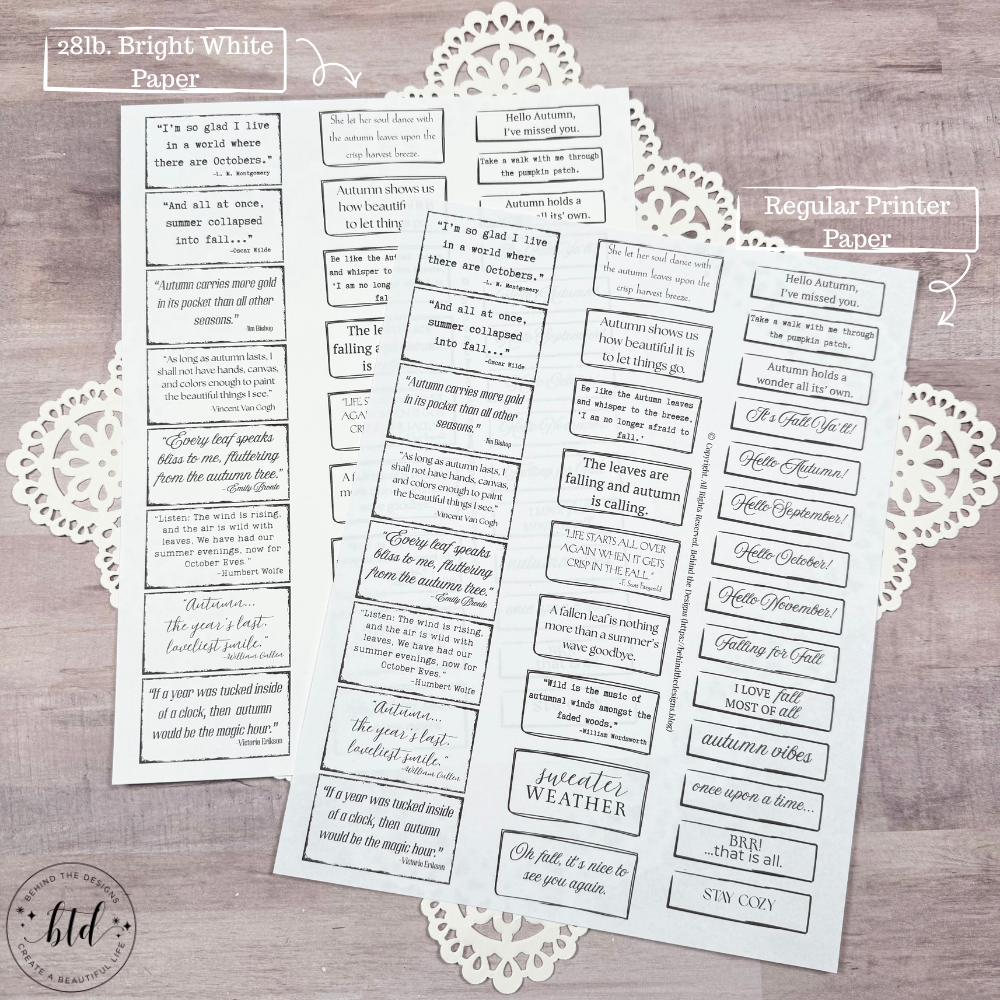 28lb. Bright White
Paper
"I'm so glad I live
in a world where
there are Octobers."
-L. M. Montgomery
"And all at once,
summer collapsed
into fall..."
-Oscar Wilde
"Autumn carries more gold
in its pocket than all other
seasons."
Jim Bishop
"As long as autumn lasts, I
shall not have hands, canvas,
and colors enough to paint
the beautiful things I see."
Vincent Van Gogh
"Every leaf speaks
bliss to me, fluttering
from the autumn tree."
-Emily Bronte
"Listen: The wind is rising,
and the air is wild with
leaves. We have had our
summer evenings, now for
October Eves."
-Humbert Wolfe
"Autumn...
the year's last,
loveliest smile."
-William Cullen
"If a year was tucked inside
of a clock, then autumn
would be the magic hour."
-Victoria Erikson
She let her soul dance with
the autumn leaves upon the
crisp harvest breeze.
Autumn shows us
how beautifu
to let thing
Be like the Aut
and whisper to
'I am no long
fal
The le
falling a
is
"LIFE S
AGAI
CRI
A f
m
Hello Autumn,
I've missed you.
Take a walk with me through
the pumpkin patch.
Autumn holds a
all its' own.
Regular Printer
Paper
"I'm so glad I live
in a world where
there are Octobers."
-L. M. Montgomery
"And all at once,
summer collapsed
into fall..."
-Oscar Wilde
"Autumn carries more gold
in its pocket than all other
seasons."
Jim Bishop
"As long as autumn lasts, I
shall not have hands, canvas,
and colors enough to paint
the beautiful things I see."
-Vincent Van Gogh
"Every leaf speaks
bliss to me, fluttering
from the autumn tree."
-Emily Bronte
"Listen: The wind is rising,
and the air is wild with
leaves. We have had our
summer evenings, now for
October Eves."
-Humbert Wolfe
"Autumn...
the year's last,
loveliest smile."
-William Cullen
"If a year was tucked inside
of a clock, then autumn
would be the magic hour."
-Victoria Erikson
She let her soul dance with
the autumn leaves upon the
crisp harvest breeze.
Autumn shows us
how beautiful it is
to let things go.
Be like the Autumn leaves
and whisper to the breeze,
'I am no longer afraid to
fall.'
The leaves are
falling and autumn
is calling.
"LIFE STARTS ALL OVER
AGAIN WHEN IT GETS
CRISP IN THE FALL."
-F. Scott Fitzgerald
A fallen leaf is nothing
more than a summer's
wave goodbye.
"Wild is the music of
autumnal winds amongst the
faded woods."
-William Wordsworth
sweater
WEATHER
Oh fall, it's nice to
see you again.
© Copyright. All Rights Reserved. Behind the Designs (https://behindthedesigns.blog)
Hello Autumn,
I've missed you.
Take a walk with me through
the pumpkin patch.
Autumn holds a
wonder all its' own.
It's Fall Ya'll!
Hello Autumn!
Hello September!
Hello October!
Hello November!
Falling for Fall
I LOVE fall
MOST OF all
autumn vibes
once upon a time...
BRR!
...that is all.
STAY COZY
BEHIND THE DESIGNS
btd
CREATE A BEAUTIFUL LIFE